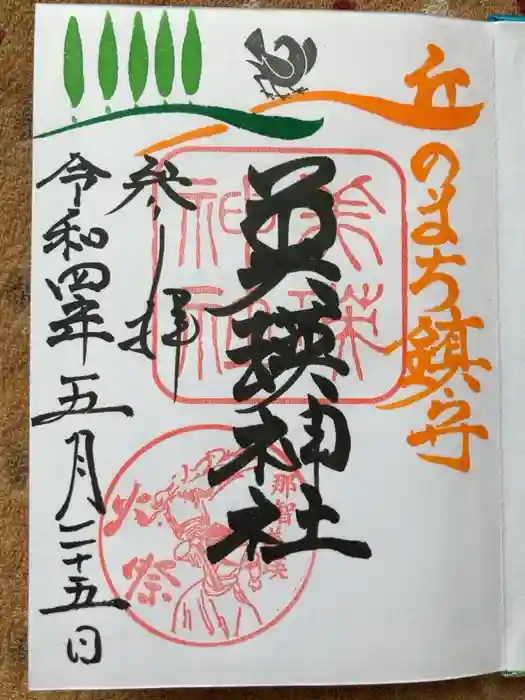 丘のまち鎮守
美瑛神社
奉拝
令和四年五月二十五日
美瑛
神社
那智美瑛
火祭